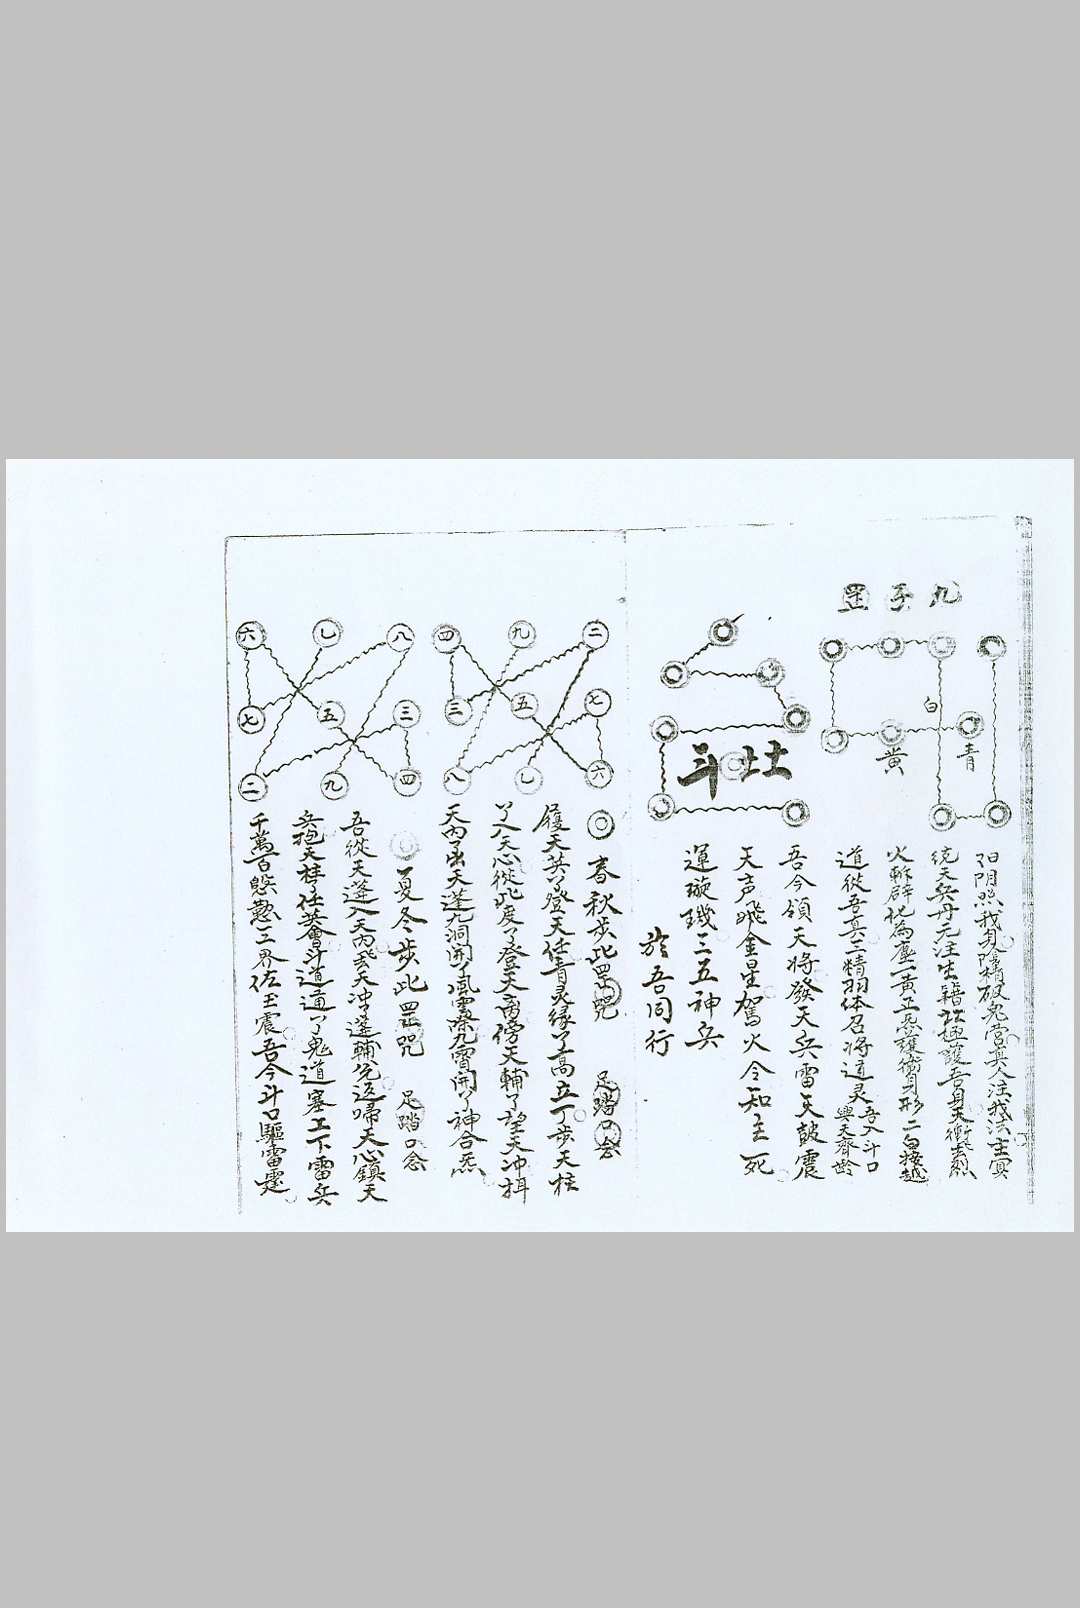 九子罡
白
黄
青
阳阴照我身阴精破鬼营真人注我法主寅
统天兵丹元注生籍北極護吾身天衝
火輧辟地為塵一黄工兵護衛身形二白接越
道從吾真三精羽体召将道灵吾入斗口
與天齊齡
吾今領天将發天兵雷天皷震
天声飛金星駕火令知主死
運璇璣三五神兵
於吾同行
斗灶
二 九 四
七 五 三
六 七 八
春秋步此罡咒 足踏口念
履天英丫登天任青灵緣丫高立丁步天柱
丫入天心從此度丫登天禽傍天輔丫望天冲揖
天内丫出天蓬九洞開丫風雷際九霄開丫神合炁
八 七 六
三 五 七
四 九 二
夏冬步此罡咒 足踏口念
吾從天蓬入天内飛天冲蓬輔先返帰天心鎮天
兵抱天柱丫任英會斗道通丫鬼道塞工下雷兵
千萬百 三界佐玉震吾今斗口驅雷霆